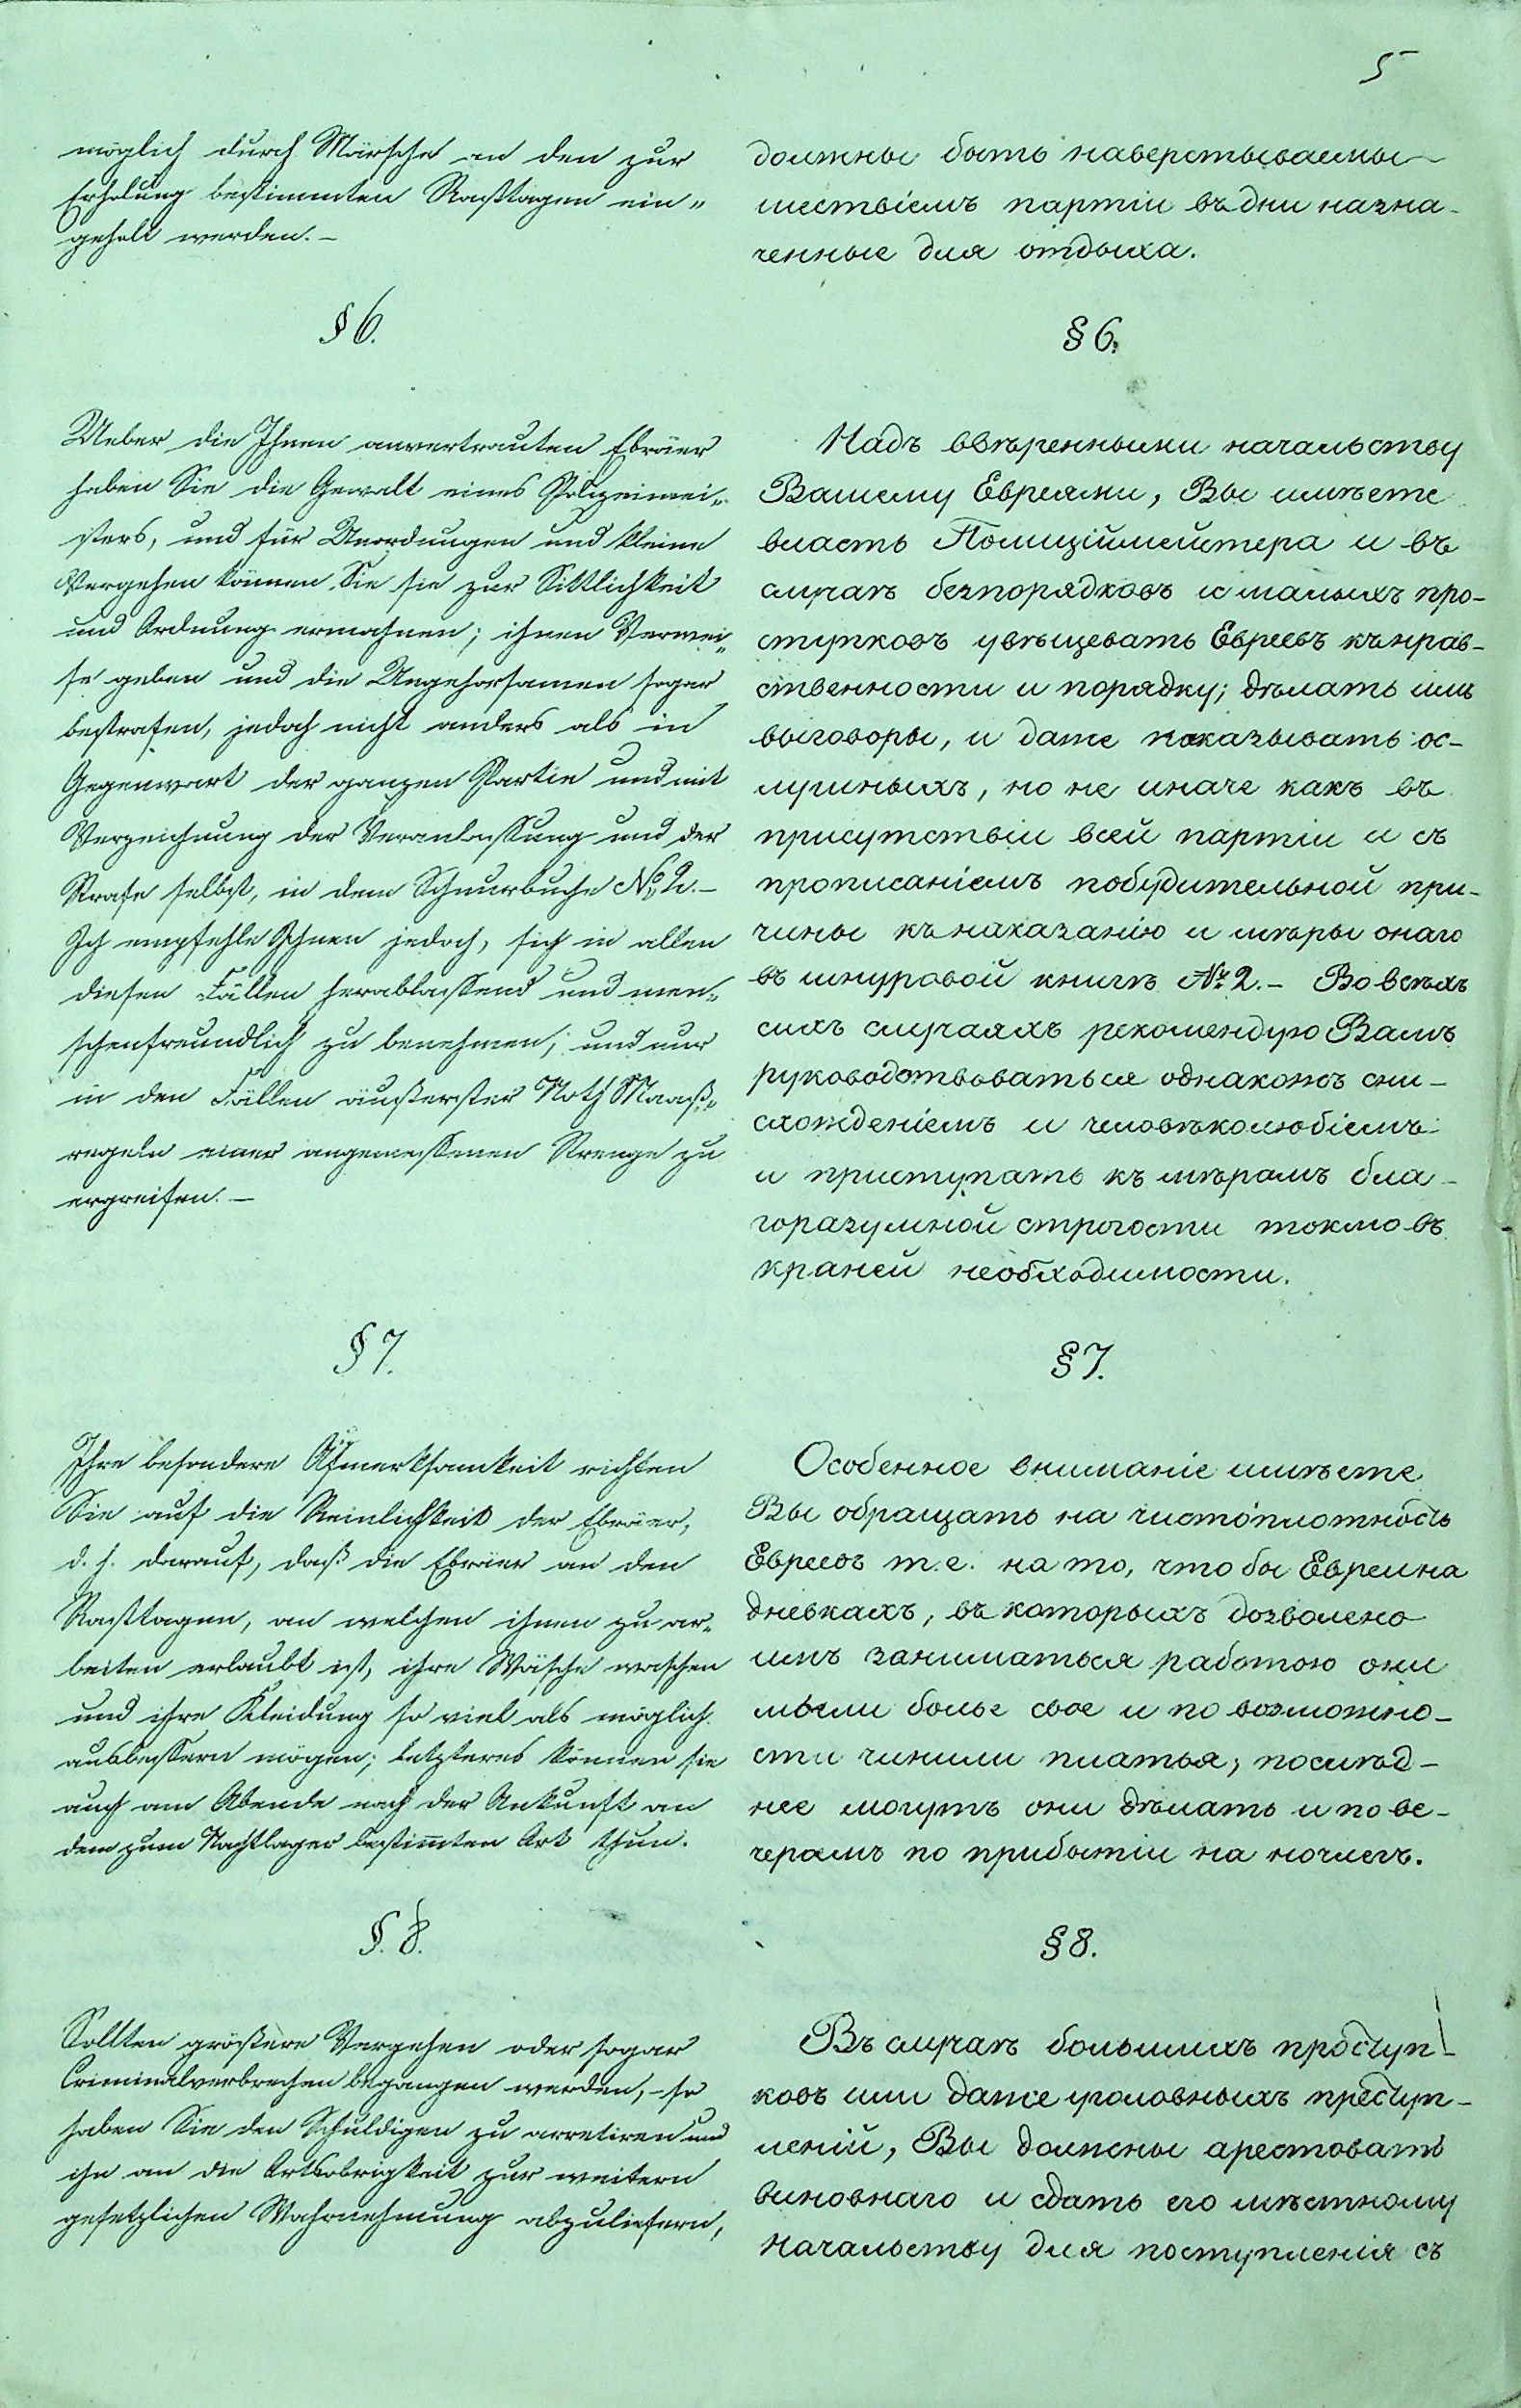 5
möglich durch Märsche an den zur
Erholung bestimmten Rasttagen ein„
geholt werden.–
§ 6.
Ueber die Ihnen anvertrauten Ebräer
haben Sie die Gewalt eines Polizeimei„
sters, und für Unordnungen und kleine
Vergehen können Sie sie zur Sittlichkeit
und Ordnung ermahnen; ihnen Verwei„
se geben und die Ungehorsamen sogar
bestrafen, jedoch nicht anders als in
Gegenwart der ganzen Partie und mit
Verzeichnung der Veranlaßung und der
Strafe selbst, in dem Schnurbuche № 2.–
Ich empfehle Ihnen jedoch, sich in allen
diesen Fällen herablaßend und men„
schenfreundlich zu benehmen; und nur
in den Fällen äußerster Noth Maaß„
regeln einer angemeßenen Strenge zu
ergreifen.–
§ 7.
Ihre besondere Aufmerksamkeit richten
Sie auf die Reinlichkeit der Ebräer,
d. h. darauf, daß die Ebräer an den
Rasttagen, an welchen ihnen zu ar„
beiten erlaubt ist, ihre Wäsche waschen
und ihre Kleidung so viel als möglich
ausbeßern mögen; letzteres können sie
auch am Abende nach der Ankunft an
dem zum Nachtlager bestimmten Ort thun.
§. 8.
Sollten größere Vergehen oder sogar
Criminalverbrechen begangen werden, – so
haben Sie den Schuldigen zu arretiren und
ihn an die Ortsobrigkeit zur weitern
gesetzlichen Wahrnehmung abzuliefern,
должны быть наверстываемы
шествіемъ партіи въ дни назна-
ченные для отдыха.
§ 6.
Надъ ввѣренными начальству
Вашему Евреями, Вы имѣете
власть Полиціймейстера и въ
случаѣ безпорядковъ и малыхъ про-
ступковъ увѣщевать Евреевъ къ нрав-
ственности и порядку; дѣлать имъ
выговоры, и даже наказывать ос-
лушныхъ, но не иначе какъ въ
присутствіи всей партіи и съ
прописаніемъ побудительной при-
чины къ наказанію и мѣры онаго
въ шнуровой книгѣ № 2.– Во всѣхъ
сихъ случаяхъ рекомендую Вамъ
руководствоваться однакожъ сни-
схожденіемъ и человѣколюбіемъ
и приступать къ мѣрамъ бла-
горазумной строгости токмо въ
краней необходимости.
§ 7.
Особенное вниманіе имѣете
Вы обращать на чистоплотность
Евреевъ т. е. на то, что бы Евреи на
дневкахъ, въ которыхъ дозволено
имъ заниматься работою они
мыли бѣлье свое и по возможно-
сти чинили платья; послѣд-
нее могутъ они дѣлать и по ве-
черамъ по прибытіи на ночлегъ.
§ 8.
Въ случаѣ большихъ проступ-
ковъ или даже уголовныхъ преступ-
леній, Вы должны арестовать
виновнаго и сдать его мѣстному
начальству для поступленія съ